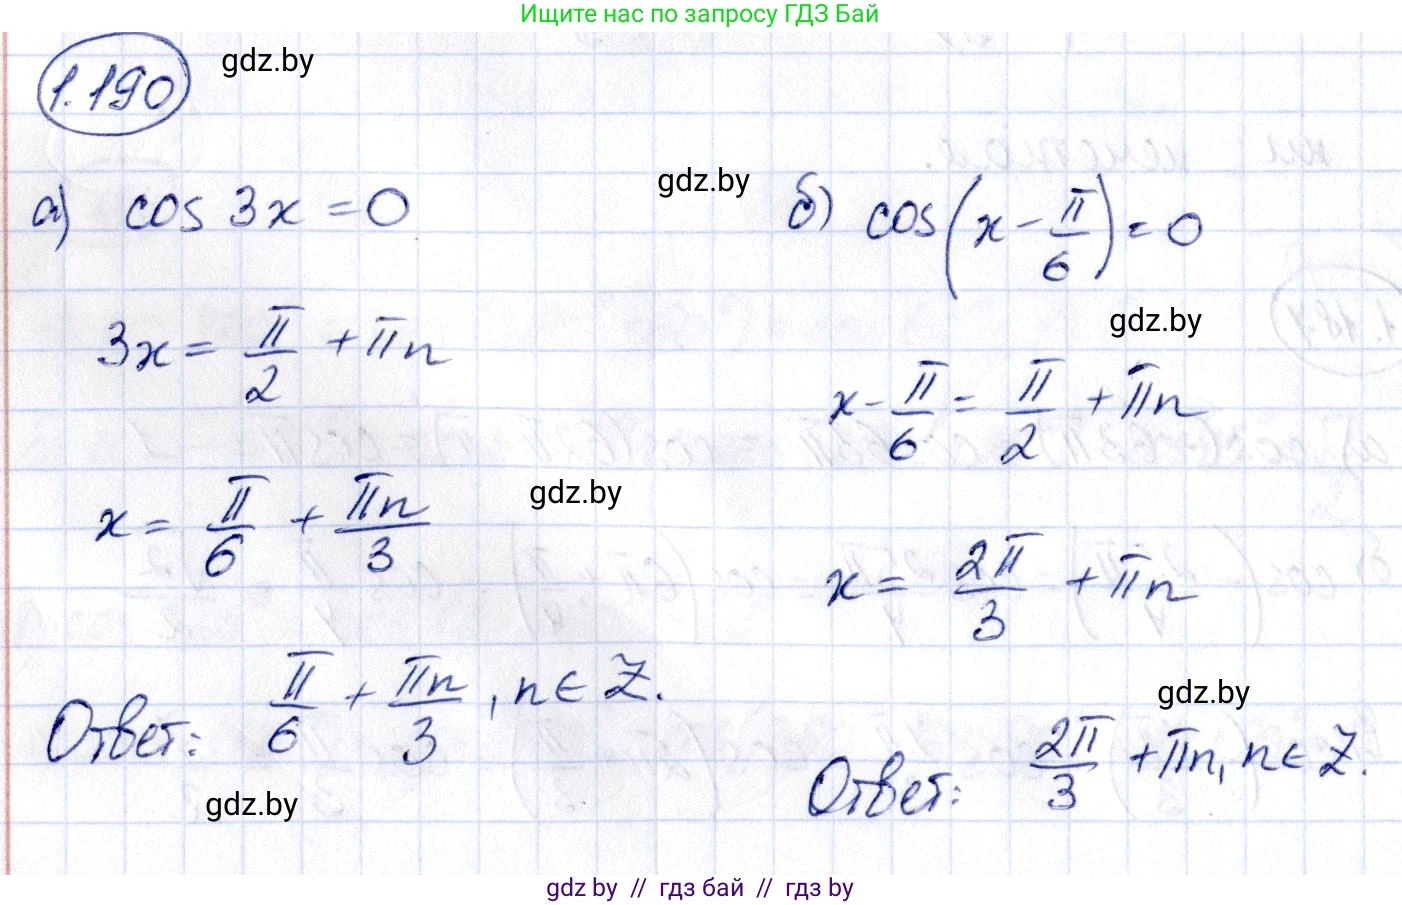 Ищите нас по запросу ГДЗ Бай
1.190
gdz.by
а) cos 3x = 0
gdz.by
б) cos(x - π/6) = 0
3x = π/2 + πn
gdz.by
x - π/6 = π/2 + πn
x = π/6 + πn/3
gdz.by
x = 2π/3 + πn
Ответ: π/6 + πn/3, n ∈ Z.
gdz.by
Ответ: 2π/3 + πn, n ∈ Z.
gdz.by
gdz by // гдз бай // гдз by